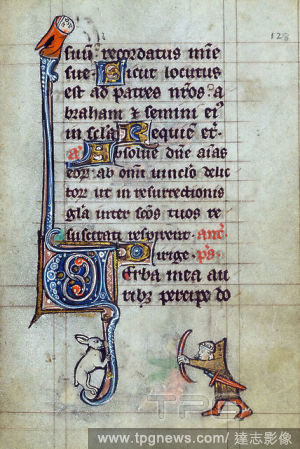 128
suū recordatus mīe
sue. Sicut locutus
est ad patres nr̄os a
braham & semini ei9
in scl̄a Requie et̄.
Absolue dn̄e aīas
eor ab omī uinclo delic
tor ut in resurrectionis
gl̄a inter sc̄os tuos re
suscitati respirent. anē.
Dirige. ps̄.
Verba mea au
ribȝ percipe do
TPG
www.tpgnews.com/ 達志影像